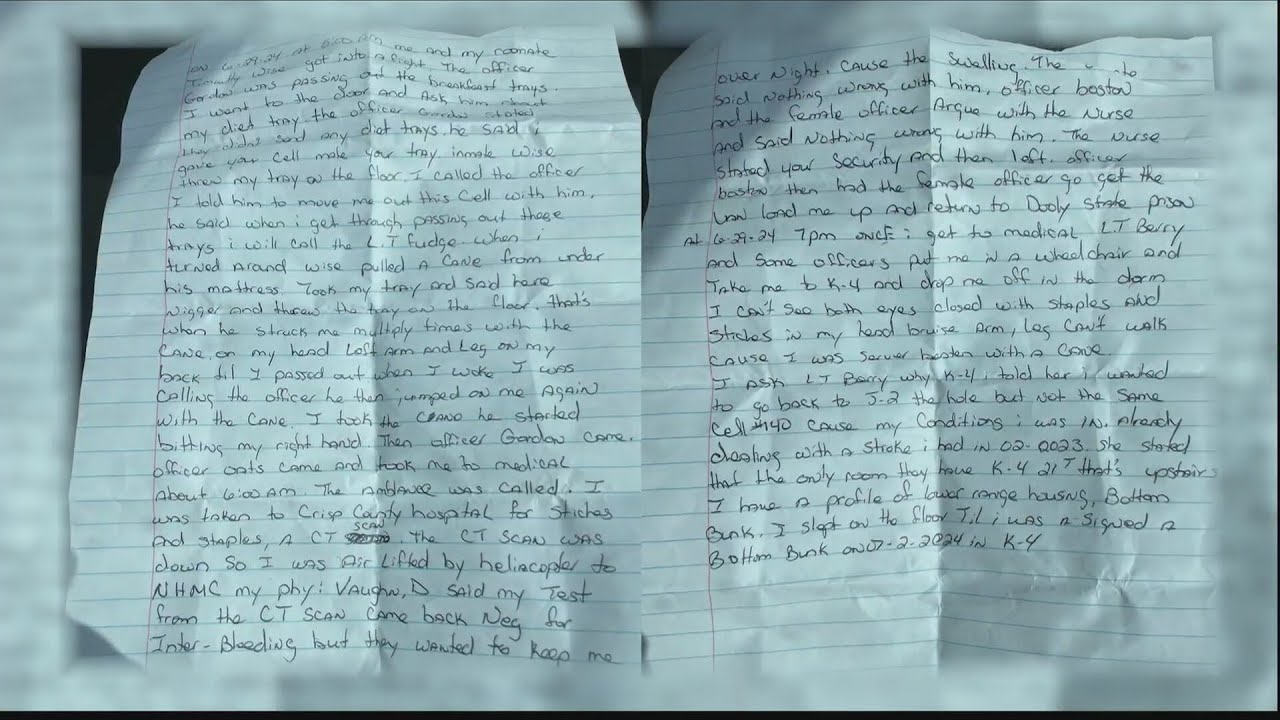 on 6-29-24 At 6:00 AM me and my roomate
Timothy Wise got into a fight. The officer
Gordon was passing out the breakfast trays.
I went to the door and Ask him about
my died tray the officer Gordon stated
they didn't said any diet trays. he said i
gave your Cell mate your tray inmate Wise
threw my tray on the floor I called the officer
I told him to move me out this Cell with him.
he said when i get through passing out these
trays i will call the L.T Fudge. when i
turned Around wise pulled A Cane from under
his mattress. Took my tray and said here
Nigger and threw the tray on the floor. that's
when he struck me multiply times with the
CANE, on my head Left Arm and Leg on my
back til I passed out when I woke I was
Calling the officer he then jumped on me Again
with the Cane. I took the he started
bitting my right hand. Then officer Gordon Came.
officer oats came and took me to medical
About 6:00 AM. The Anblance was called. I
was taken to Crisp County hospital for stiches
And staples, A CT SCAN. The CT SCAN WAS
down So I was Air Lifted by heliacopter to
NHMC my phy: Vaughn, D said my Test
from the CT SCAN Came back Neg for
Inter-Bleeding but they wanted to keep me
over Night. Cause the Swelling. The
said Nothing wrong with him, officer boston
and the female officer Argue with the Nurse
And said Nothing wrong with him. The Nurse
stated your Security And then left. officer
boston then had the female officer go get the
VAN load me up and return to Dooly State prison
At 6-29-24 7pm ONCE i get to medical LT Berry
and Some officers put me in a wheelchair and
Take me to K-4 and drop me off in the dorm
I can't see both eyes closed with staples And
stiches in my head bruise Arm, Leg Can't walk
Cause I was Server beaten with a CANE
I Ask LT Berry why K-4 i told her i wanted
to go back to J-2 the hole but not the Same
Cell #140 Cause my Conditions i was in. Already
dealing with a stroke i had in 02-2023. She stated
that the only room they have K-4 21T that's upstairs
I have a profile of lower range housing, Bottom
Bunk. I slept on the floor Til i was a Signed a
Bottom Bunk on 07-2-2024 in K-4